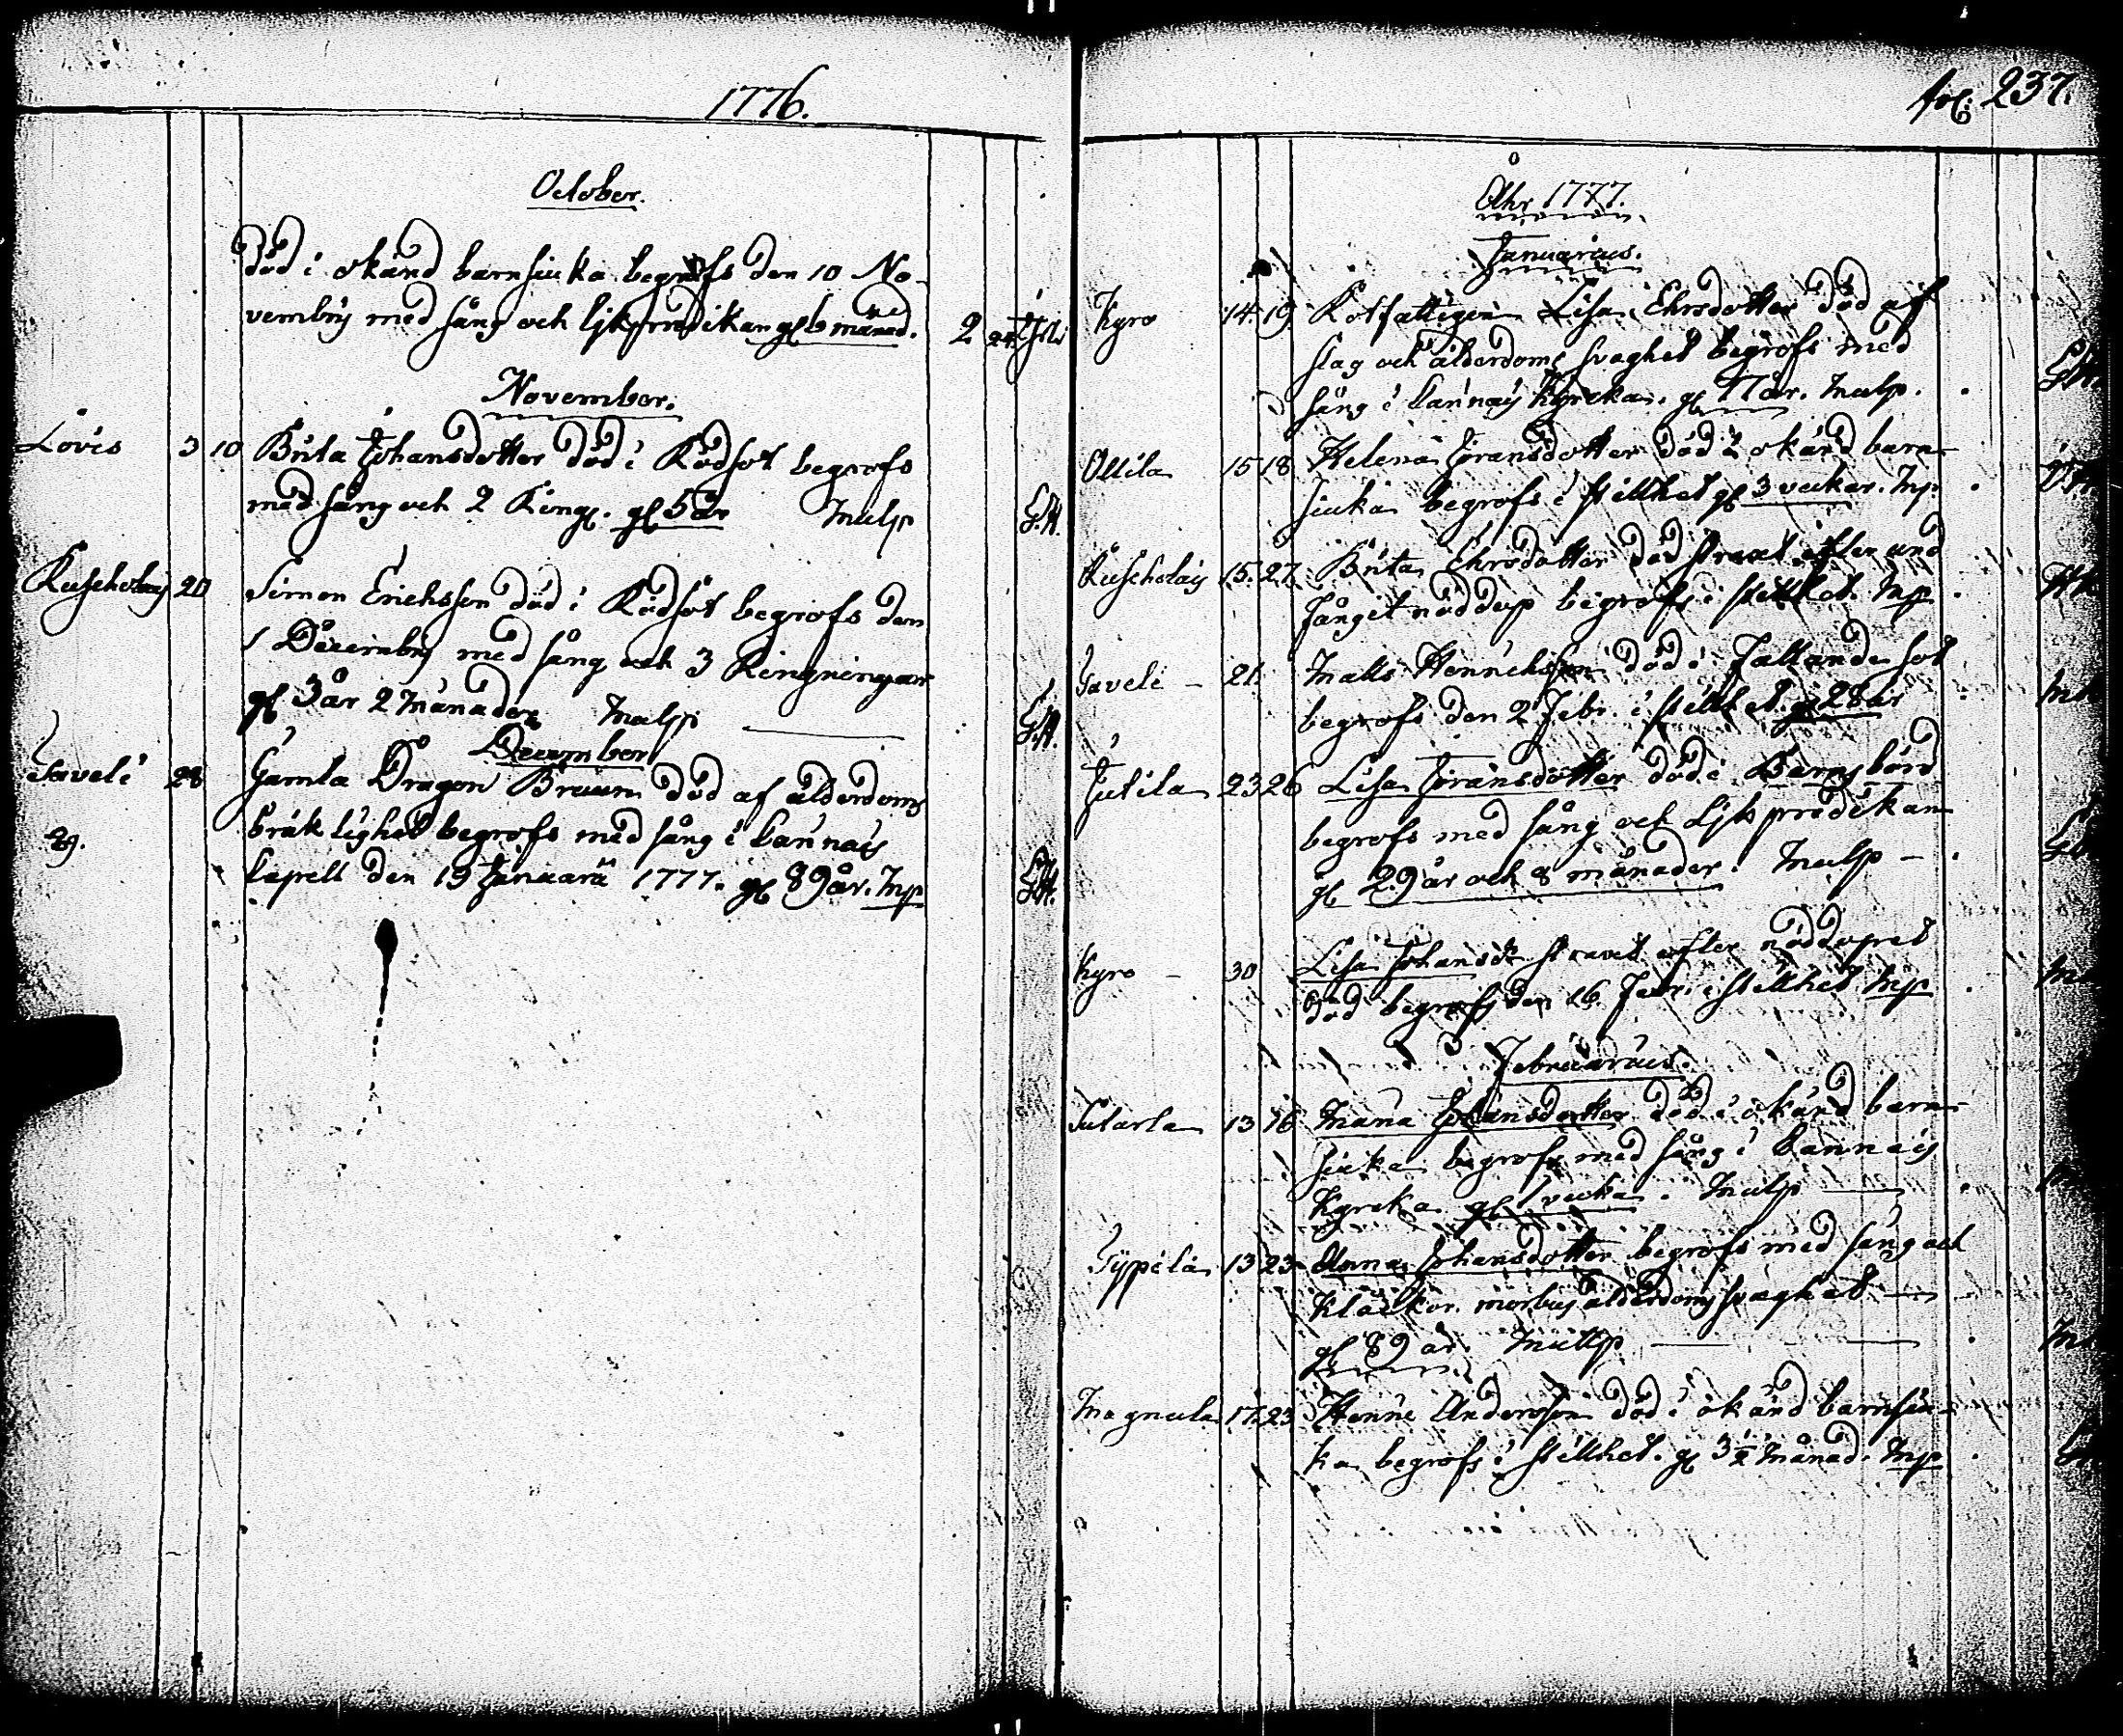 1776.
October.
död i okänd barnsiuka begrofs den 10 No-
vembrij med sång och ljkpredikan gl 6 månad. 2 24
November.
Lovis 3 10 Brita Johansdotter död i Rödsot begrofs
med sång och 2 Ring. gl 5 år Malp G.H.
Kuscholaij 20 Simon Erichsson död i Rödsot begrofs den
1 Decembrij med sång och 3 Ringningar
gl 3 år 2 månader Malp G.H.
December
Taveli 28 Gamla Dragon Bruun död af ålderdoms
29. bräklighet begrofs med sång i Cannais
Capell den 19 Januarii 1777. gl 89 år. Mp G.H.
fol. 237.
Åhr 1777.
Januarius.
Kyro 14 19 Rotfattigen Lisa Ehrsdotter död af
slag och ålderdoms svaghet begrofs med
sång i Cannaij Kyrcka. gl 77 år. Malp.
Ollila 15 18 Helena Jöransdotter död i okänd barn-
siuka begrofs i stillhet gl 3 veckor. Mp.
Kuscholaij 15. 27. Brita Ehrsdotter död straxt efter und
fångit nöddop begrofs i stillhet. Mp.
Taveli - 21. Matts Hennichsson död i fallande sot
begrofs den 2 Febr. i stillhet. gl 28 år
Jutila 23 26 Lisa Jöransdotter död i Barnsbörd
begrofs med sång och Ljkspredikan
gl 29 år och 8 månader. Malp -
Kyro - 30 Lisa Johansdr straxt efter nöddopet
död begrofs den 16 Febr. i stillhet Mp
Februarius.
Sutarla 13 16 Maria Johansdotter död i okänd barn-
siuka begrofs med sång i Cannaij
Kyrcka gl 1 vecka. Malp
Typpilä 13 23 Anna Johansdotter begrofs med sång och
Klåckor. morbus ålderdoms svaghet
gl 89 år. Malp
Magnula 17. 23 Henric Andersson död i okänd barnsiu-
ka begrofs i stillhet. gl 3 1/2 månad. Mp